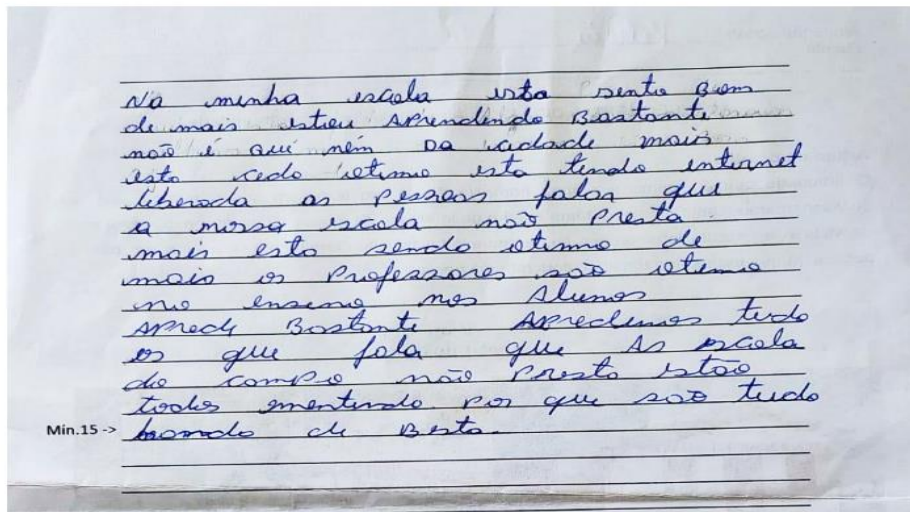 Na minha escola esta sento Bom
de mais estou Aprendendo Bastante
não é qui nem Da cidade mais
esta cedo otimo esta tendo internet
liberada as Pessoas falar que
a nossa escola não Presta
mais esta sendo otimo de
mais os Professores são otimo
no ensino nos Alunos
Aprede Bastante Apredemos tudo
os que fala que As escola
do campo não Presta estão
todos mentindo Por que são tudo
de Besta.
Min.15 ->